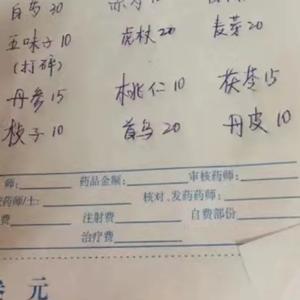 白芍30
五味子10 虎杖20 麦芽20
(打碎)
丹参15 桃仁10 茯苓15
栀子10 首乌20 丹皮10
师: 药品金额: 审核药师:
药师/士: 核对、发药药师:
费: 注射费: 自费部份:
治疗费:
元